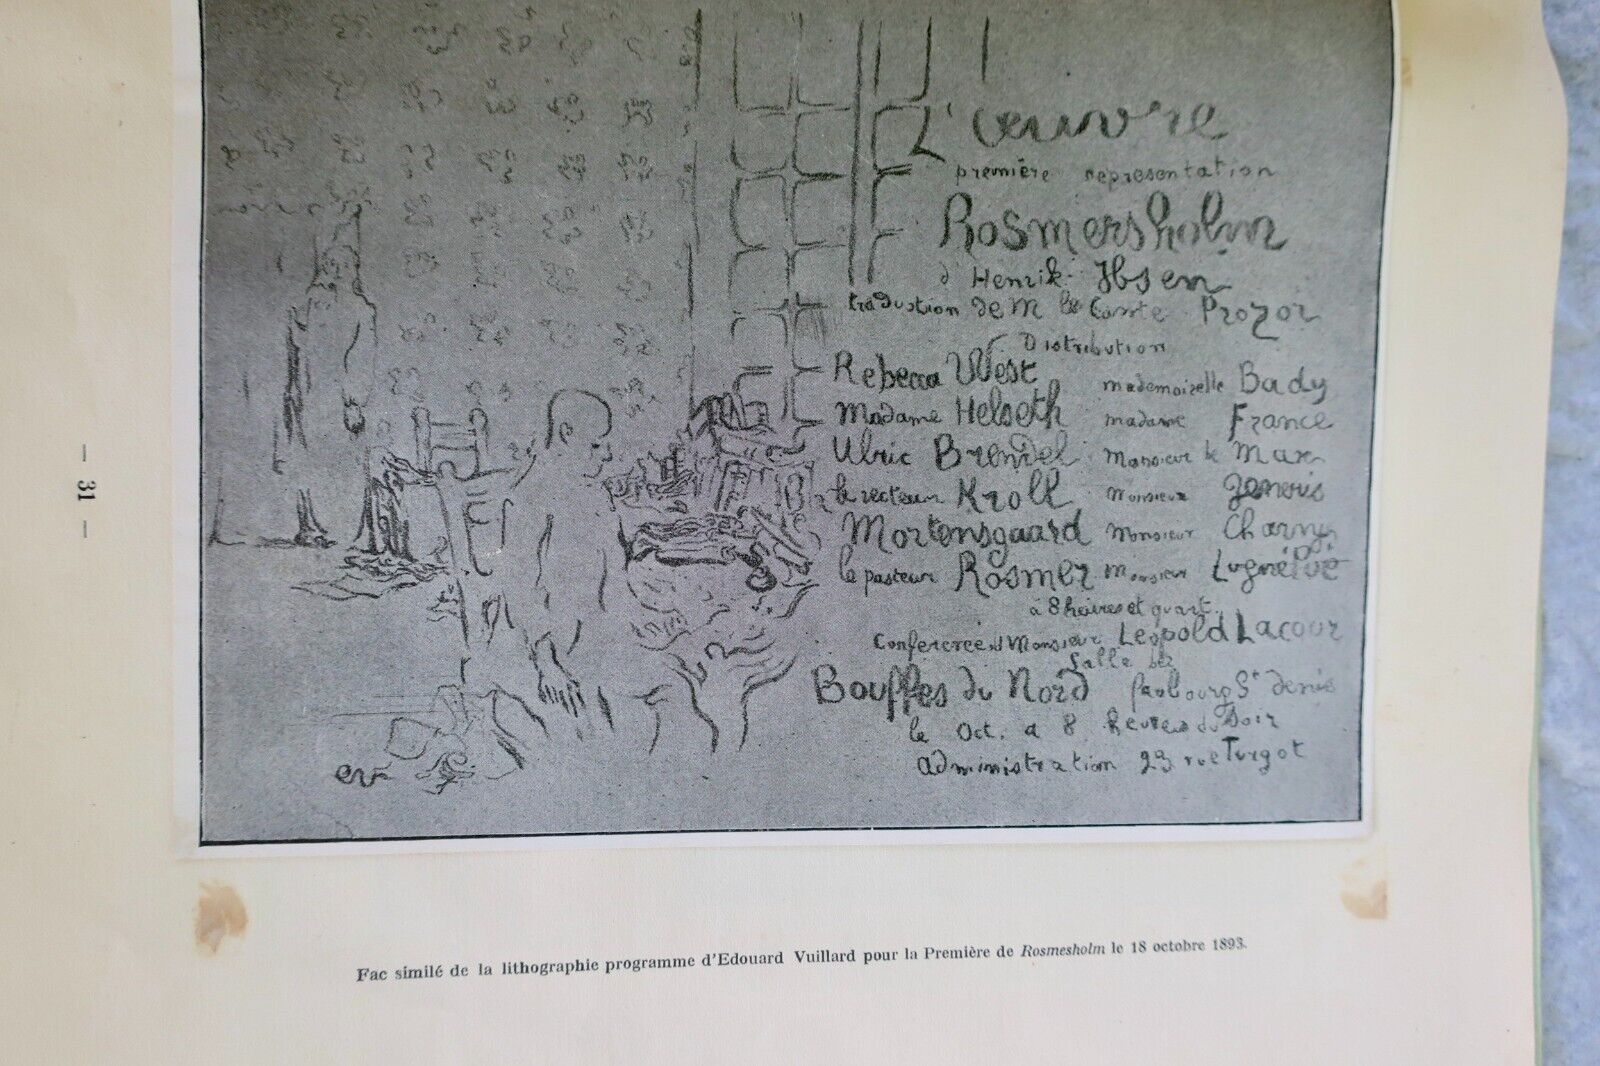 L'œuvre
première representation
Rosmersholm
d'Henrik Ibsen
traduction de M le Comte Prozor
Distribution
Rebecca West mademoiselle Bady
Madame Helseth madame France
Ulric Brendel Monsieur de Max
le recteur Kroll Monsieur
Mortensgaard Monsieur Charny
le pasteur Rosmer Monsieur Lugné Poë
à 8 heures et quart
Conference d Monsieur Leopold Lacour
Salle des
Bouffes du Nord faubourg St denis
le Oct. a 8 heures du Soir
administration 23 rue Turgot
ev
— 31 —
Fac similé de la lithographie programme d'Edouard Vuillard pour la Première de Rosmesholm le 18 octobre 1893.